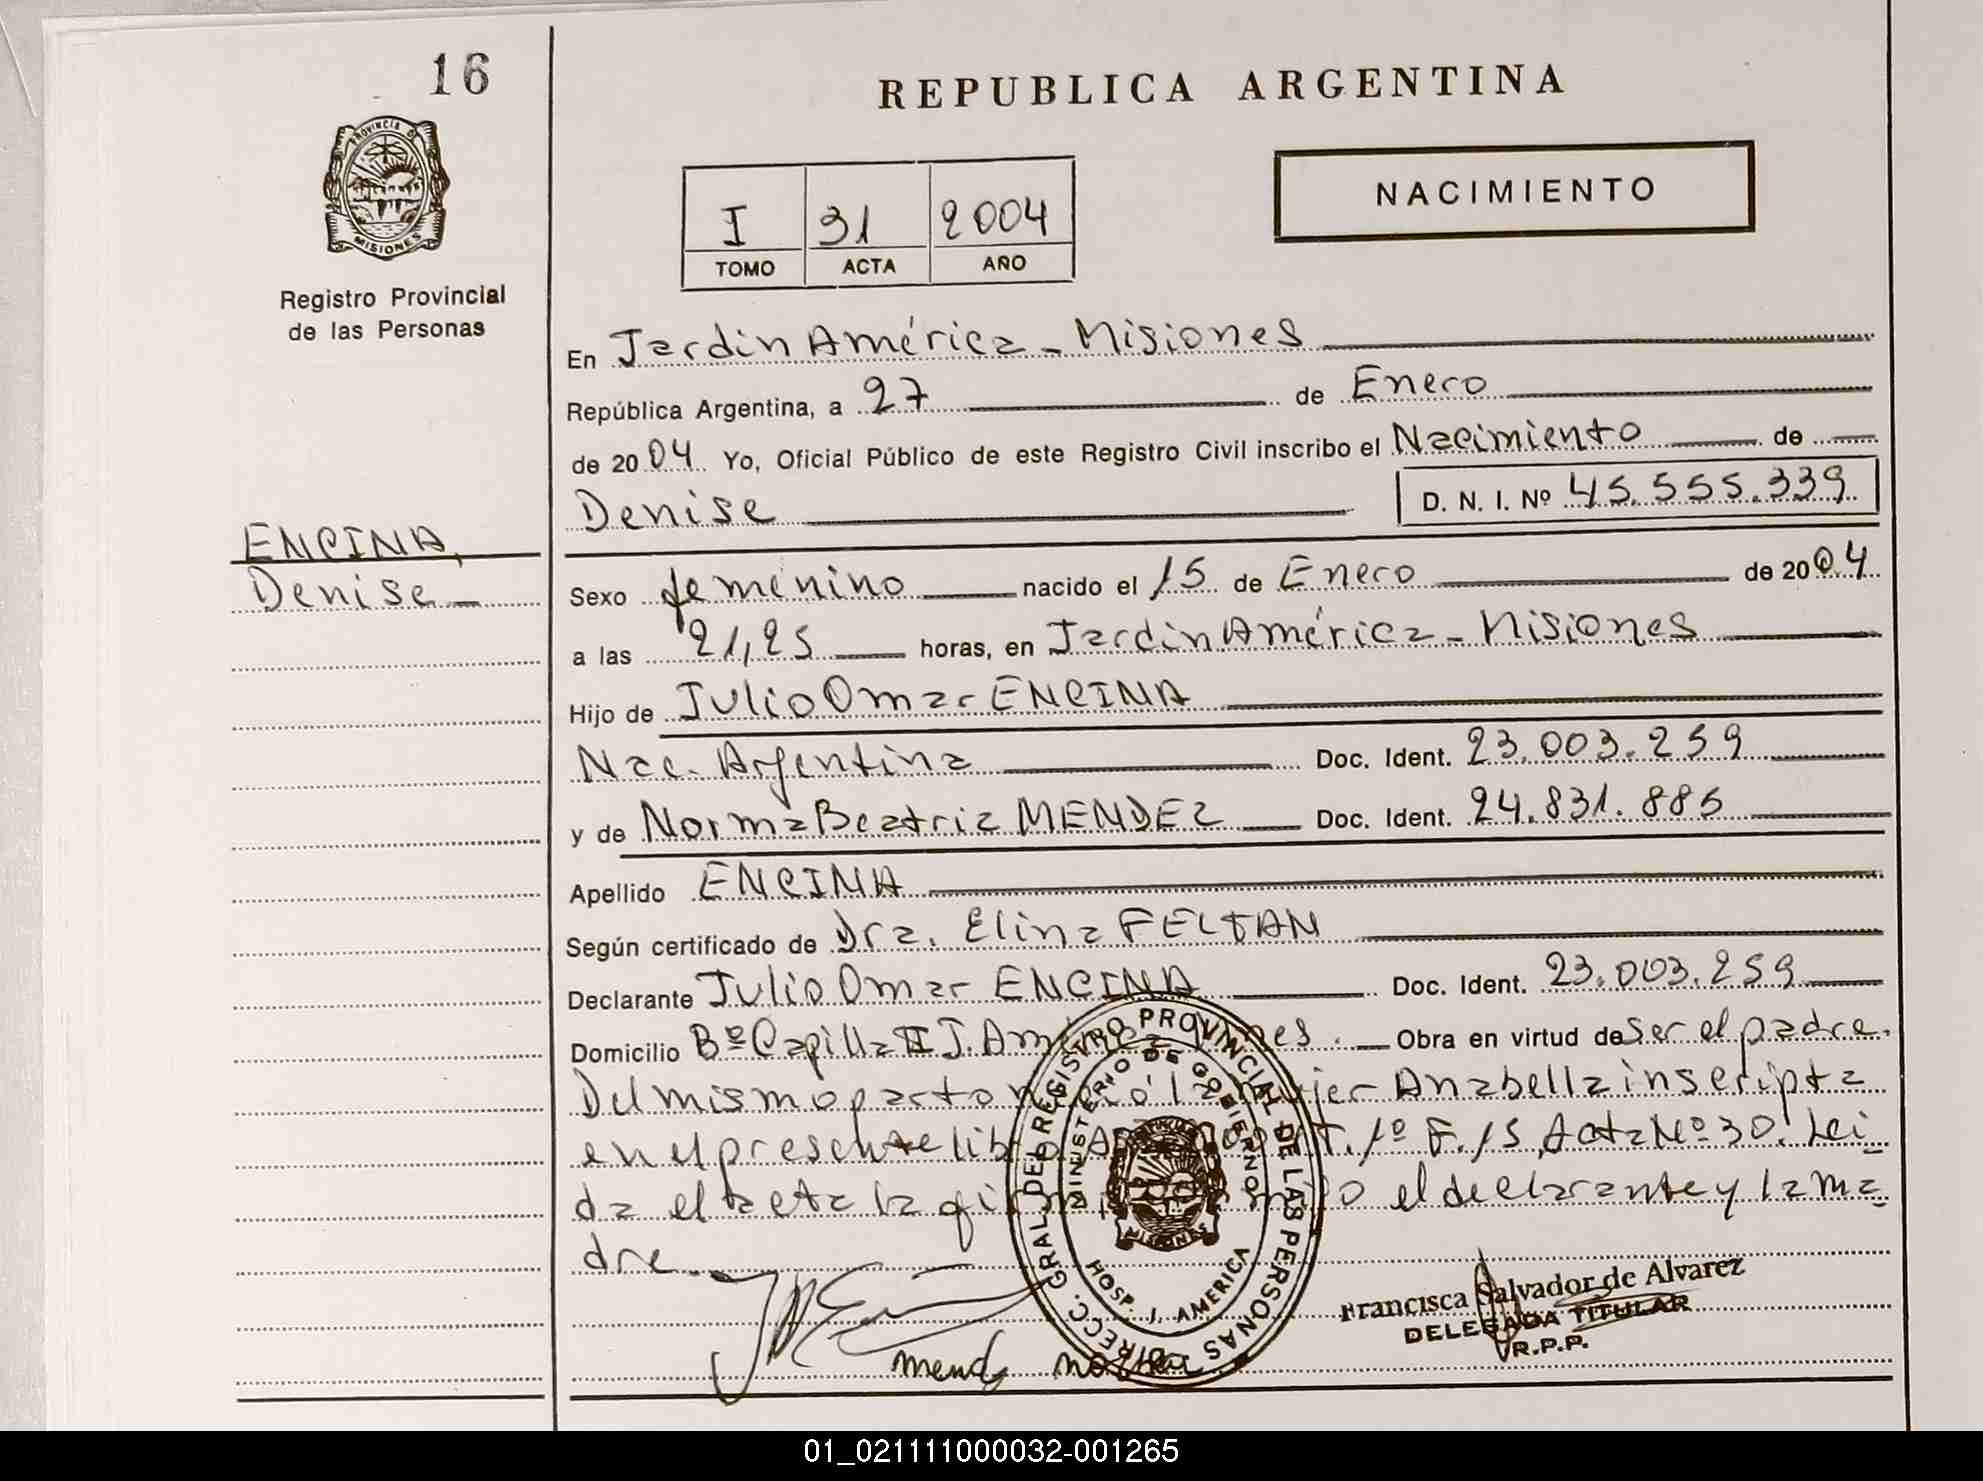 16
REPUBLICA ARGENTINA
PROVINCIA DE
MISIONES
NACIMIENTO
I 31 2004
TOMO ACTA AÑO
Registro Provincial
de las Personas
En Jardin América - Misiones
República Argentina, a 27 de Enero
de 2004 Yo, Oficial Público de este Registro Civil inscribo el Nacimiento de
Denise D. N. I. Nº 45.555.339
ENCINA,
Denise
Sexo femenino nacido el 15 de Enero de 2004
a las 21,25 horas, en Jardin América - Misiones
Hijo de Julio Omar ENCINA
Nac. Argentina Doc. Ident. 23.003.259
y de Norma Beatriz MENDEZ Doc. Ident. 24.831.885
Apellido ENCINA
Según certificado de Dra. Elina FELTAN
Declarante Julio Omar ENCINA Doc. Ident. 23.003.259
Domicilio Bº Capilla II J. América Obra en virtud de ser el padre.
Del mismo parto nació la mujer Anabella inscripta
en el presente libro T. 1º F. 15, Acta Nº 30. Lei
da el acta la firman el declarante y la ma
dre
DIRECC. GRAL. DEL REGISTRO PROVINCIAL DE LAS PERSONAS
MINISTERIO DE GOBIERNO
MISIONES
HOSP. J. AMERICA
Francisca Salvador de Alvarez
DELEGADA TITULAR
R.P.P.
01_021111000032-001265